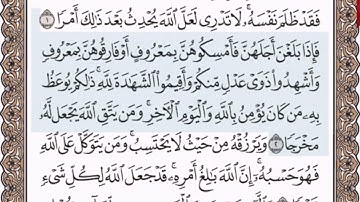 فَقَدْ ظَلَمَ نَفْسَهُۥ ۚ لَا تَدْرِى لَعَلَّ ٱللَّهَ يُحْدِثُ بَعْدَ ذَٰلِكَ أَمْرًا ١
فَإِذَا بَلَغْنَ أَجَلَهُنَّ فَأَمْسِكُوهُنَّ بِمَعْرُوفٍ أَوْ فَارِقُوهُنَّ بِمَعْرُوفٍ
وَأَشْهِدُوا۟ ذَوَىْ عَدْلٍ مِّنكُمْ وَأَقِيمُوا۟ ٱلشَّهَٰدَةَ لِلَّهِ ۚ ذَٰلِكُمْ يُوعَظُ
بِهِۦ مَن كَانَ يُؤْمِنُ بِٱللَّهِ وَٱلْيَوْمِ ٱلْءَاخِرِ ۚ وَمَن يَتَّقِ ٱللَّهَ يَجْعَل لَّهُۥ
مَخْرَجًا ٢ وَيَرْزُقْهُ مِنْ حَيْثُ لَا يَحْتَسِبُ ۚ وَمَن يَتَوَكَّلْ عَلَى ٱللَّهِ
فَهُوَ حَسْبُهُۥٓ ۚ إِنَّ ٱللَّهَ بَٰلِغُ أَمْرِهِۦ ۚ قَدْ جَعَلَ ٱللَّهُ لِكُلِّ شَىْءٍ